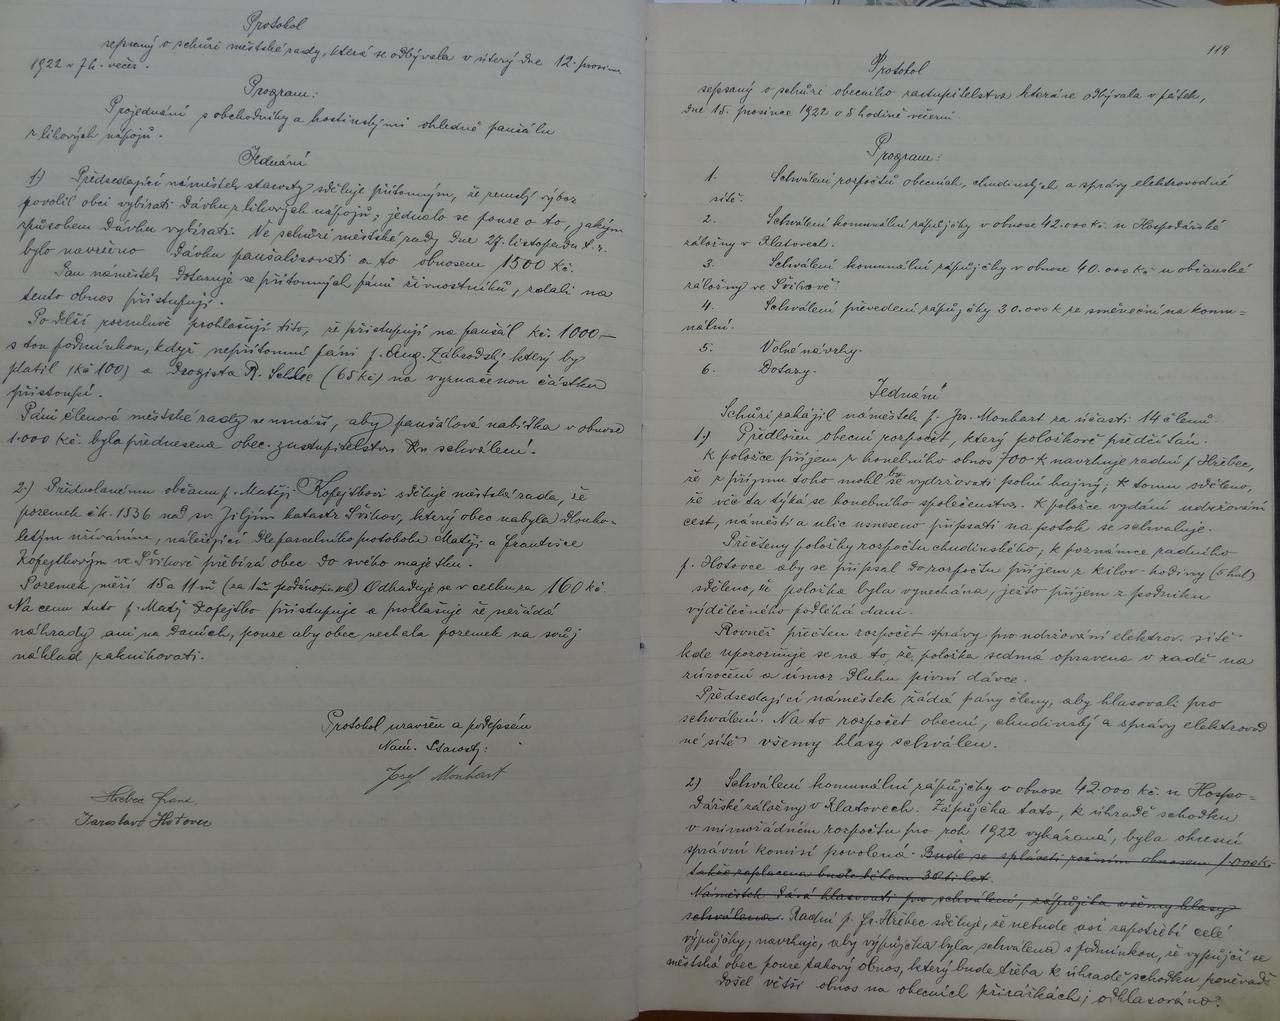 Protokol
sepsaný o schůzi městské rady, která se odbývala v úterý dne 12. prosince
1922 v 7 h. večer.
Program:
Projednání s obchodníky a hostinskými ohledně paušálu
z lihových nápojů.
Jednání
1.) Předsedající náměstek starosty sděluje přítomným, že zemský výbor
povolil obci vybírati dávku z lihových nápojů; jednalo se pouze o to, jakým
způsobem dávku vybírati. Ve schůzi městské rady dne 27. listopadu t. r.
bylo navrženo dávku paušalovati a to obnosem 1500 Kč.
Pan náměstek dotazuje se přítomných pánů živnostníků, zdali na
tento obnos přistupují.
Po delší rozmluvě prohlašují tito, že přistupují na paušál Kč. 1000—
s tou podmínkou, když nepřítomní páni p. Aug. Zábrodský který by
platil (Kč 100) a Drogista R. (65 Kč) na vyznačenou částku
přistoupí.
Páni členové městské rady se usnáší, aby paušálová nabídka v obnose
1.000 Kč. byla přednesena obec. zastupitelstvu ku schválení.
2.) Předvolanému občanu p. Matěji Kofejtkovi sděluje městská rada, že
pozemek č. k. 1536 nad sv. Jiljím katastr Švihov, který obec nabyla dlouho-
letým užíváním, náležející dle parcelního protokolu Matěji a Františce
Kofejtkovým ve Švihově přebírá obec do svého majetku.
Pozemek měří 15 a 11 m² Odhaduje se v celku za 160 Kč.
Na cenu tuto p. Matěj Kofejtko přistupuje a prohlašuje že nežádá
náhrady ani na daních, pouze aby obec nechala pozemek na svůj
náklad zaknihovati.
Protokol uzavřen a podepsán
Nám. Starosty:
Josef Monhart
Hřebec Franz
Jaroslav Hotovec
119
Protokol
sepsaný o schůzi obecního zastupitelstva která se odbývala v pátek,
dne 15. prosince 1922 o 8 hodině večerní.
Program:
1. Schválení rozpočtů obecních, chudinských a správy elektrovodné
sítě.
2. Schválení komunální zápůjčky v obnose 42.000 Kč. u Hospodářské
záložny v Klatovech.
3. Schválení komunální zápůjčky v obnose 40.000 Kč u občanské
záložny ve Švihově.
4. Schválení převedení zápůjčky 30.000 K ze směneční na komu-
nální.
5. Volné návrhy.
6. Dotazy.
Jednání
Schůzi zahájil náměstek p. Jos. Monhart za účasti 14 členů.
1.) Předložen obecní rozpočet, který položkově předčítán.
K položce příjem z honebního obnos 700 K navrhuje radní p. Hřebec,
že z příjmu toho mohl by se vydržovati polní hajný; k tomu sděleno,
že věc ta týká se honebního společenstva. K položce vydání udržování
cest, náměstí a ulic usneseno připsati na potok se schvaluje.
Přečteny položky rozpočtu chudinského; k poznámce radního
p. Hotovce aby se připsal do rozpočtu příjem z kilov-hodiny (5 hal)
sděleno, že položka byla vynechána, ježto příjem z podniku
výdělečného podléhá dani.
Rovněž přečten rozpočet správy pro udržování elektrov. sítě
kde upozorňuje se na to, že položka sedmá opravena v řadě na
zúročení a úmor dluhu pivní dávce.
Předsedající náměstek žádá pány členy, aby hlasovali pro
schválení. Na to rozpočet obecní, chudinský a správy elektrovod
né sítě všemy hlasy schválen.
2.) Schválení komunální zápůjčky v obnose 42.000 Kč. u Hospo-
dářské záložny v Klatovech. Zápůjčka tato, k úhradě schodku
v mimořádném rozpočtu pro rok 1922 vykázaná, byla okresní
správní komisí povolena. Bude se spláceti ročním obnosem Kč.
takže zaplacena bude během 30ti let.
Náměstek dává hlasovati pro schválení, zápůjčka všemy hlasy
schválena. Radní p. Fr. Hřebec sděluje, že nebude asi zapotřebí celé
výpůjčky; navrhuje, aby výpůjčka byla schválena s podmínkou, že vypůjčí se
městská obec pouze takový obnos, který bude třeba k úhradě schodku poněvadž
došel větší obnos na obecních přirážkách; odhlasováno.